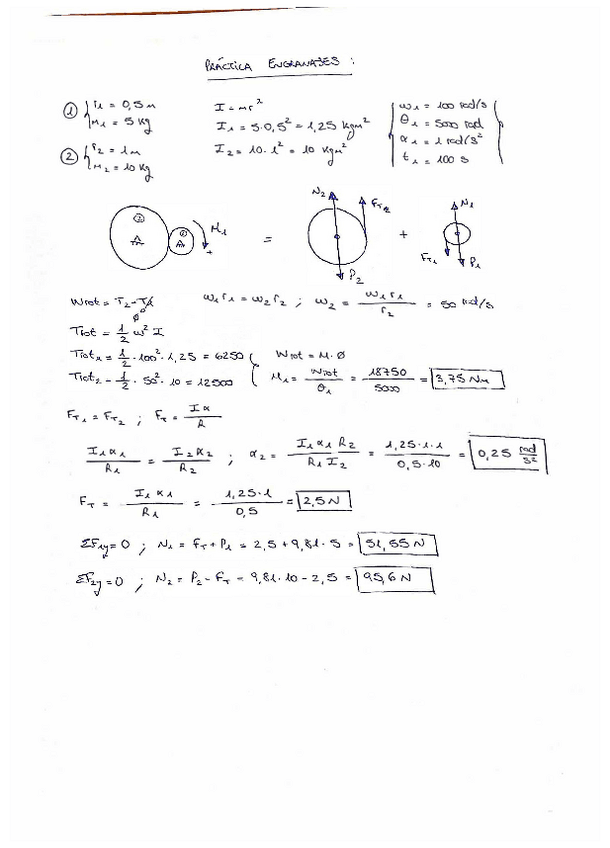 PRÁCTICA ENGRANAJES :
① { r₁ = 0,5 m   I = mr²   ω₁ = 100 rad/s
M₁ = 5 Kg   I₁ = 5·0,5² = 1,25 Kgm²   θ₁ = 5000 rad
② { r₂ = 1m   I₂ = 10·1² = 10 Kgm²   α₁ = 1 rad/s²
M₂ = 10 Kg   t₁ = 100 s
② ① M₁ + = N₂ F_T2 P₂ + N₁ F_T1 P₁
Wrot = T₂ - T₁   ω₁ r₁ = ω₂ r₂ ; ω₂ = ω₁ r₁ / r₂ = 50 rad/s
0
Trot = 1/2 ω² I
Trot₁ = 1/2 · 100² · 1,25 = 6250 { Wrot = M · Ø
Trot₂ = 1/2 · 50² · 10 = 12500   M₁ = Wrot / θ₁ = 18750 / 5000 = 3,75 Nm
F_T1 = F_T2 ; F_T = I α / R
I₁ α₁ / R₁ = I₂ α₂ / R₂ ; α₂ = I₁ α₁ R₂ / R₁ I₂ = 1,25·1·1 / 0,5·10 = 0,25 rad/s²
F_T = I₁ α₁ / R₁ = 1,25·1 / 0,5 = 2,5 N
ΣF₁y = 0 ; N₁ = F_T + P₁ = 2,5 + 9,81·5 = 51,55 N
ΣF₂y = 0 ; N₂ = P₂ - F_T = 9,81·10 - 2,5 = 95,6 N